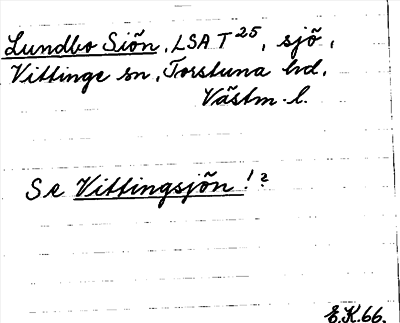 Lundbo Siön, LSA T 25, sjö,
Vittinge sn, Torstuna hd,
Västm. l.
Se Vittingsjön!?
E.K.66.